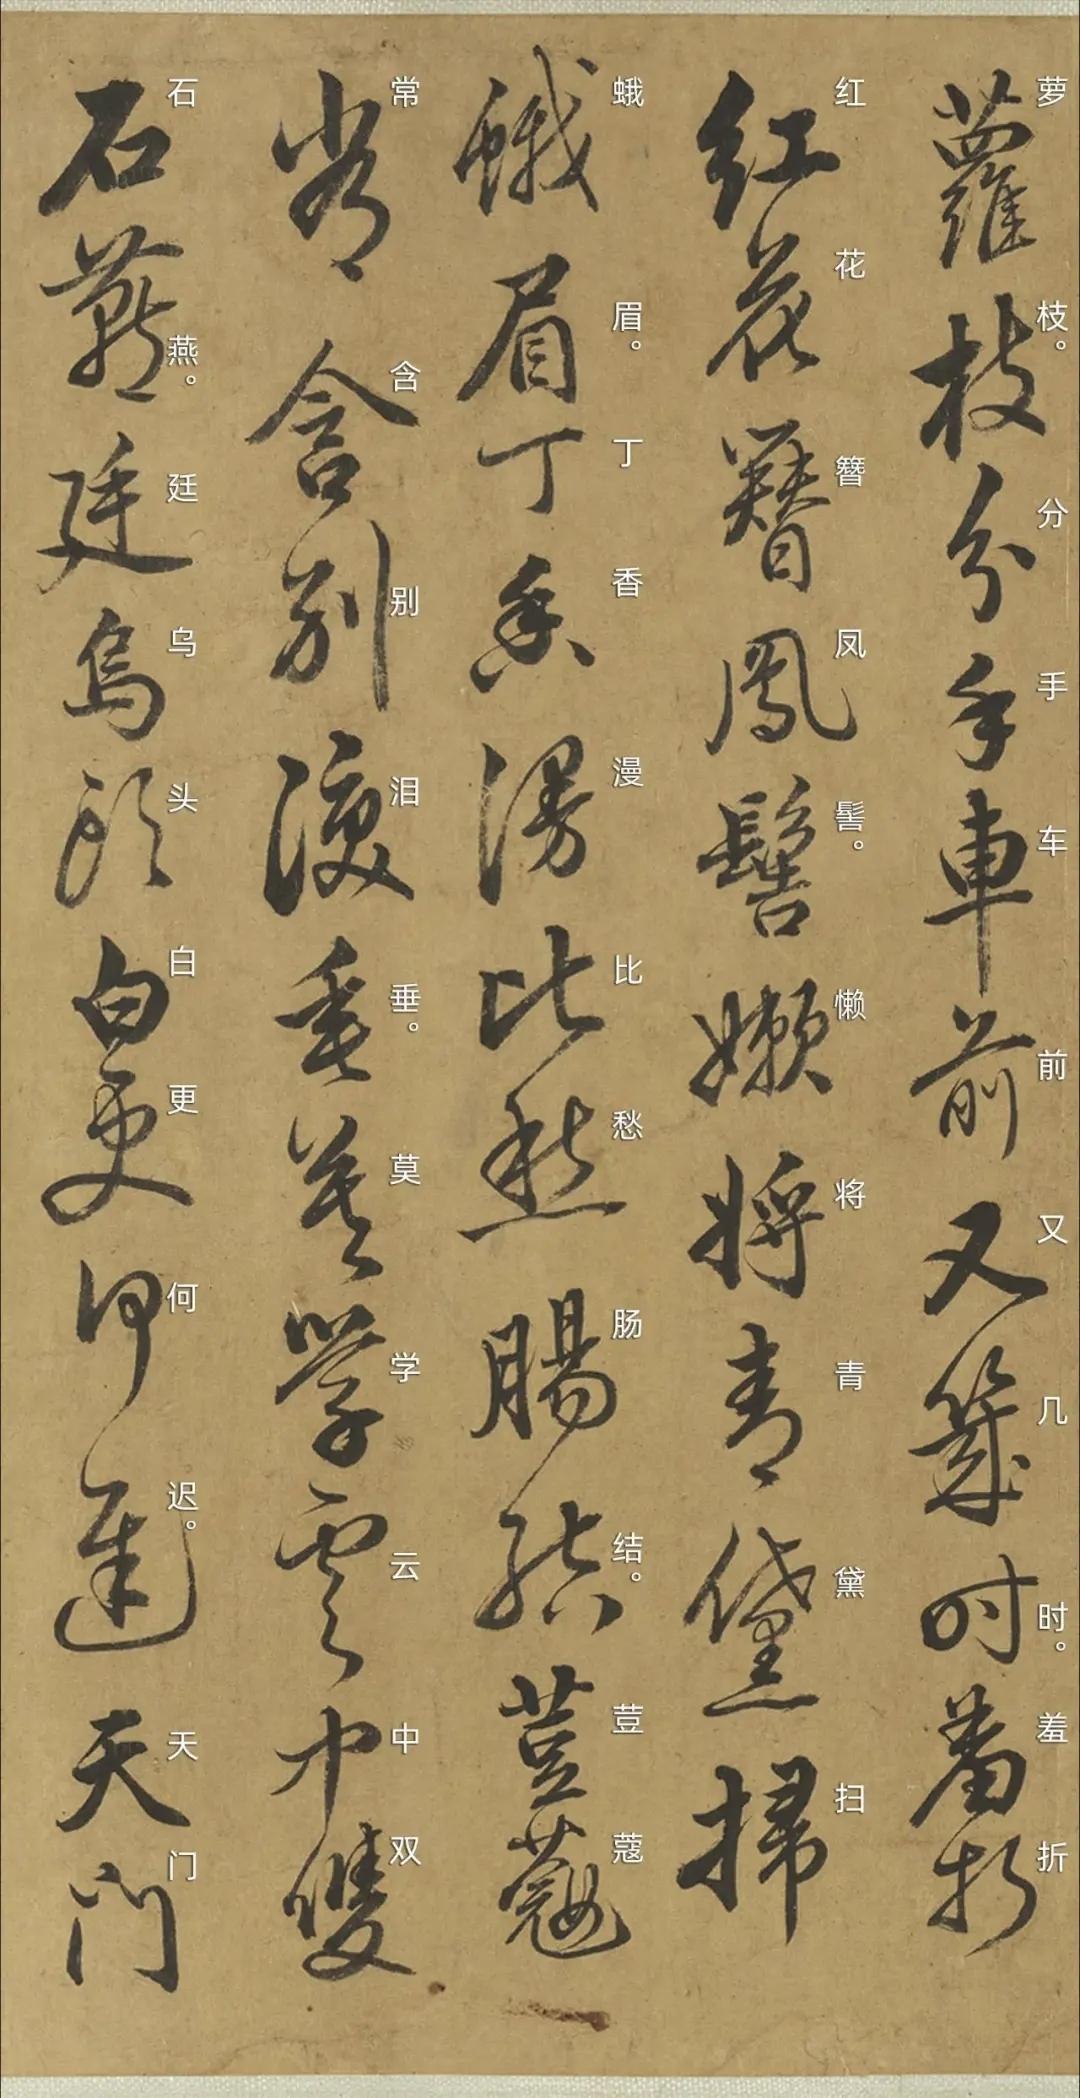 蘿枝分手車前又幾时番折
萝枝。分手车前又几时。羞折
紅花簪鳳髻嬾將青黛掃
红花簪凤髻。懒将青黛扫
蛾眉丁香漫比愁腸結荳蔻
蛾眉。丁香漫比愁肠结。荳蔻
常含別淚垂莫學雲中雙
常含别泪垂。莫学云中双
石燕廷烏頭白更何遲天門
石燕。廷乌头白更何迟。天门